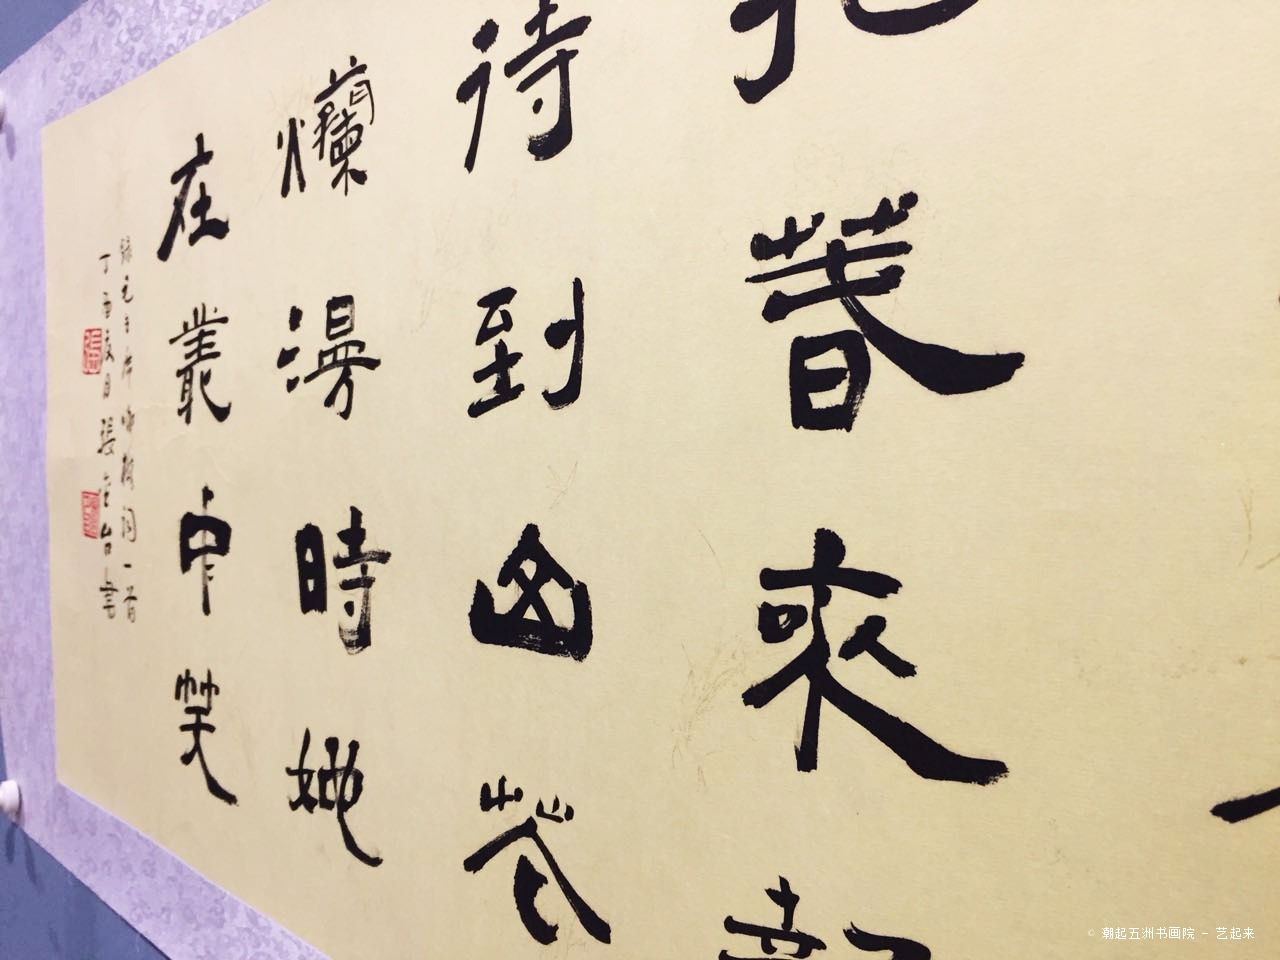 把春來報
待到山花
爛漫時她
在叢中笑
錄毛主席咏梅词一首
丁酉夏月張台書
© 潮起五洲书画院 – 艺起来